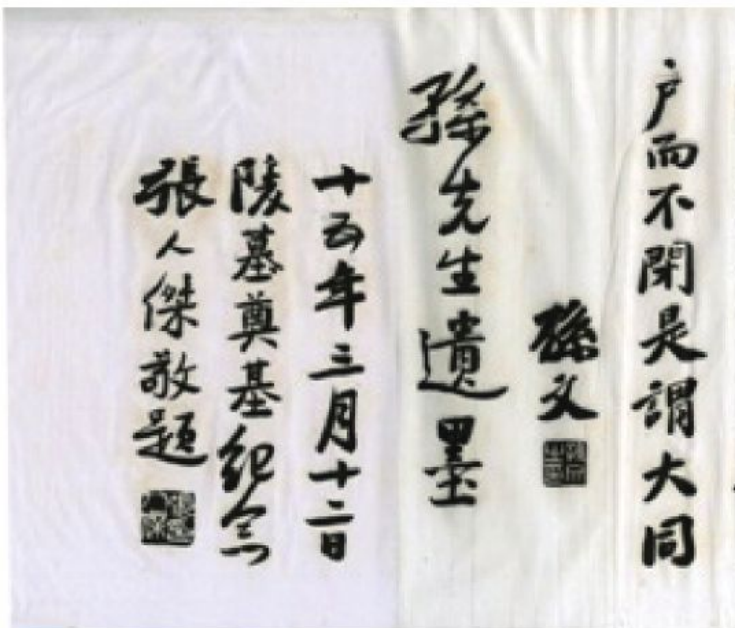 户而不閉是謂大同
孫文
孫先生遺墨
十五年三月十二日
陵墓奠基紀念
張人傑敬題